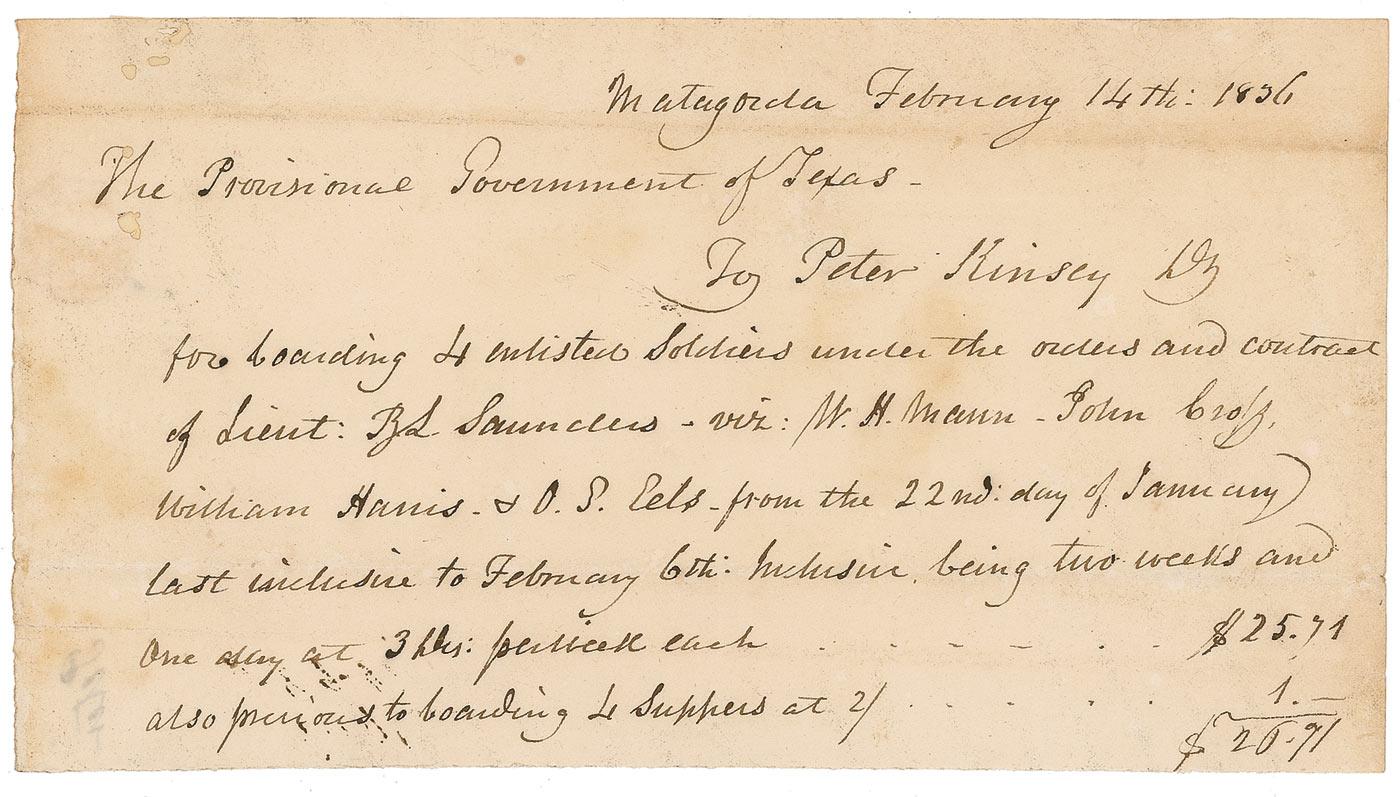 Matagorda February 14th: 1836
The Provisional Government of Texas -
To Peter Kinsey Dr
for boarding 4 enlisted Soldiers under the orders and contract
of Lieut: B L Saunders - viz: W. H. Mann - John Cross,
William Harris - & O. S. Eels - from the 22nd: day of January
last inclusive to February 6th: Inclusive, being two weeks and
One day at 3 Drs: per week each . . - - . . $25.71
also previous to boarding 4 Suppers at 2/ . . . . 1. —
$ 26.71